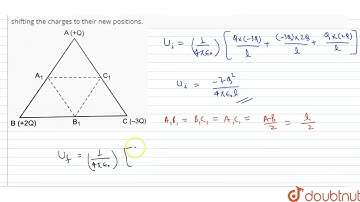 shifting the charges to their new positions.
A (+Q)
A₁
C₁
B (+2Q)
B₁
C (−3Q)
Uᵢ = (1/4πε₀) [ Q×(−3Q)/l + (−3Q)×2Q/l + Q×(2Q)/l ]
Uᵢ = −7Q²/4πε₀l
A₁B₁ = B₁C₁ = A₁C₁ = AB/2 = l/2
U_f = (1/4πε₀) [
doubtnut